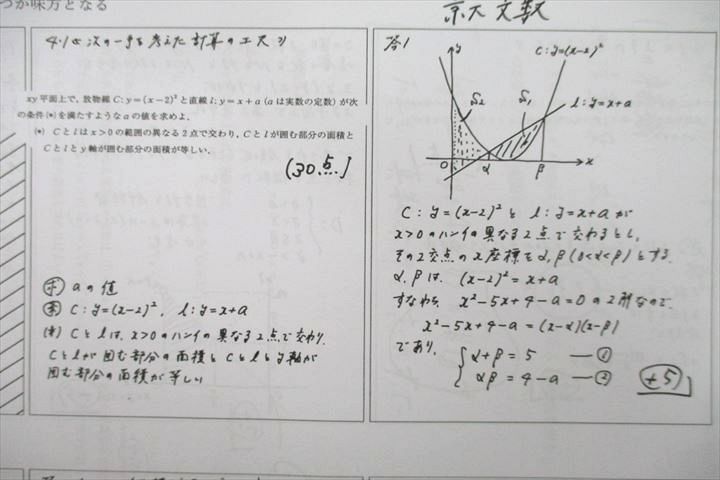 つか味方となる
京大文数
4.1 は次の一手を考えた計算の工夫
xy平面上で,放物線C:y=(x−2)²と直線l:y=x+a(aは実数の定数)が次
の条件(*)を満たすようなaの値を求めよ.
(*) Cとlはx>0の範囲の異なる2点で交わり,Cとlが囲む部分の面積と
Cとlとy軸が囲む部分の面積が等しい.
(30点)
aの値
C: y=(x-2)², l: y=x+a
(*) Cとlは, x>0のハンイの異なる2点で交わり,
Cとlが囲む部分の面積とCとlとy軸が
囲む部分の面積が等しい
答1
y
C: y=(x-2)²
S₂
S₁
l: y=x+a
O
α
β
x
C: y=(x-2)² と l: y=x+a が
x>0のハンイの異なる2点で交わるとし,
その2交点のx座標をα,β(0<α<β)とする.
α,βは, (x-2)²=x+a
すなわち, x²-5x+4-a=0の2解なので,
x²-5x+4-a=(x-α)(x-β)
であり,
α+β=5 ―①
αβ=4-a ―②
+5